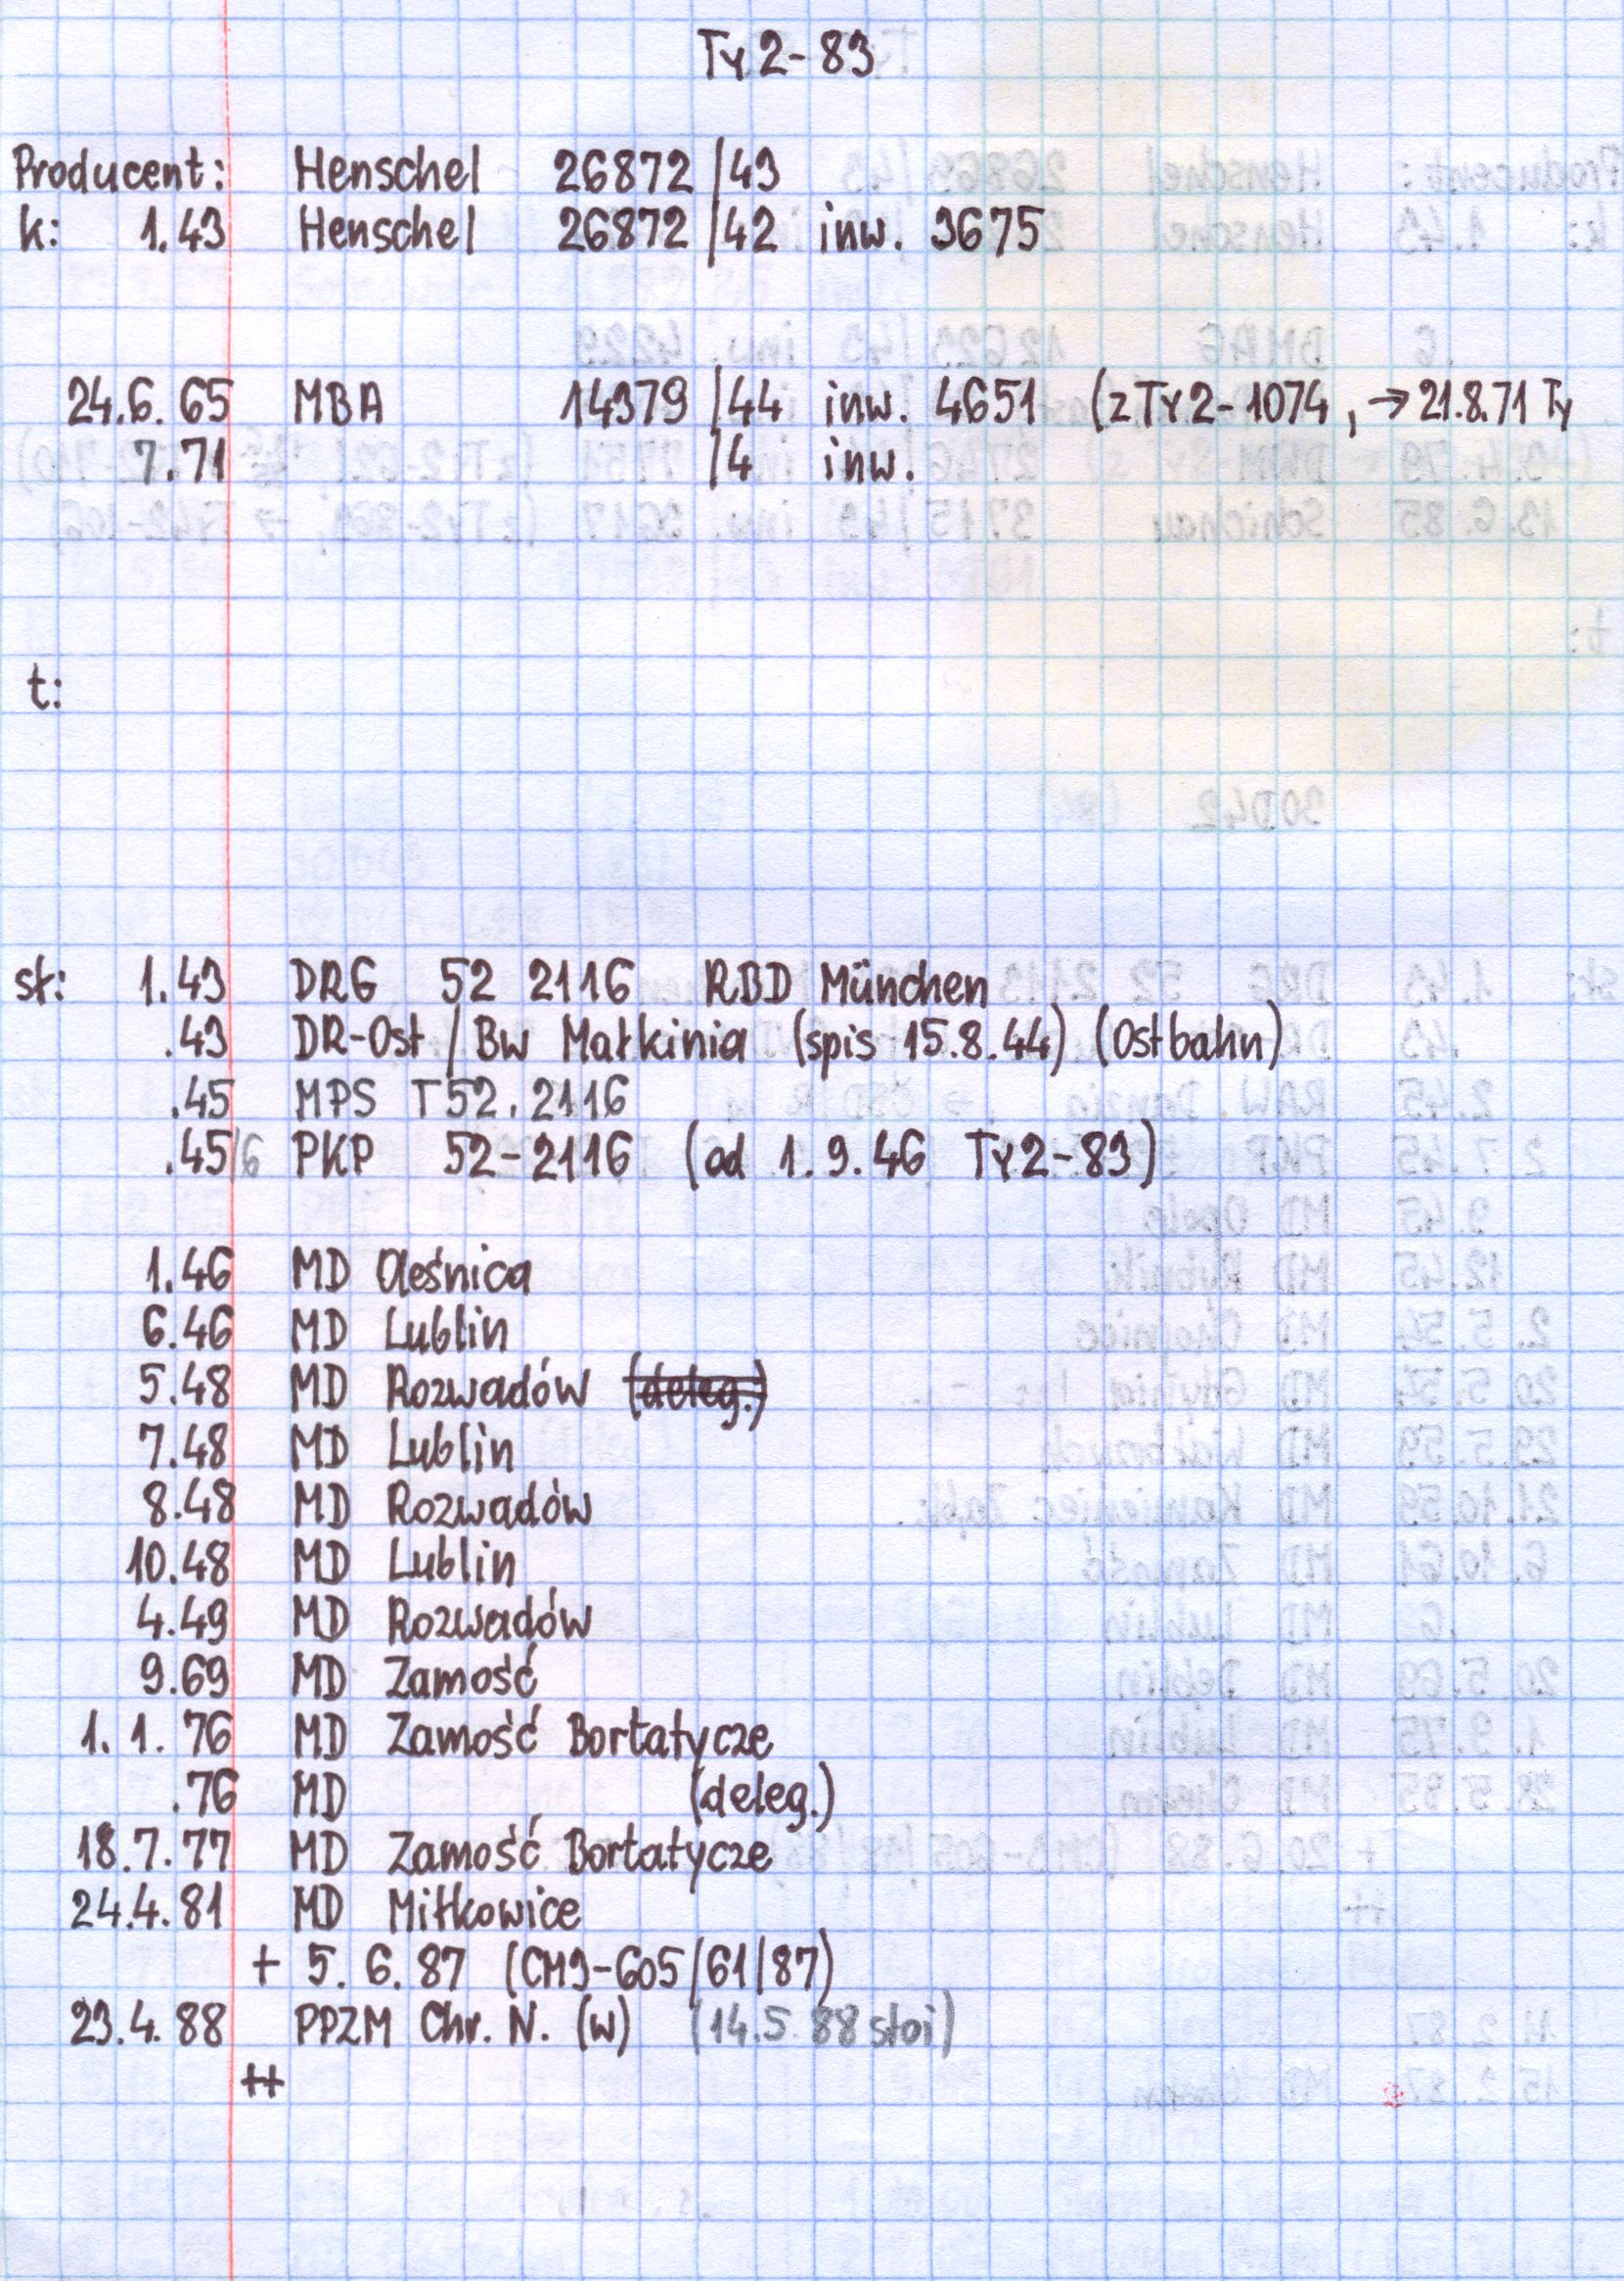 Ty2-83
Producent: Henschel 26872/43
k: 1.43 Henschel 26872/42 inw. 3675
24.6.65 MBA 14379/44 inw. 4651 (z Ty2-1074, → 21.8.71 Ty
7.71 /4 inw.
t:
st: 1.43 DRG 52 2116 RBD München
.43 DR-Ost/Bw Małkinia (spis 15.8.44) (Ostbahn)
.45 MPS T52.2116
.45/6 PKP 52-2116 (od 1.9.46 Ty2-83)
1.46 MD Oleśnica
6.46 MD Lublin
5.48 MD Rozwadów (deleg.)
7.48 MD Lublin
8.48 MD Rozwadów
10.48 MD Lublin
4.49 MD Rozwadów
9.69 MD Zamość
1.1.76 MD Zamość Bortatycze
.76 MD (deleg.)
18.7.77 MD Zamość Bortatycze
24.4.81 MD Miłkowice
+ 5.6.87 (CM3-605/61/87)
23.4.88 PPZM Chr. N. (w) (14.5.88 stoi)
++